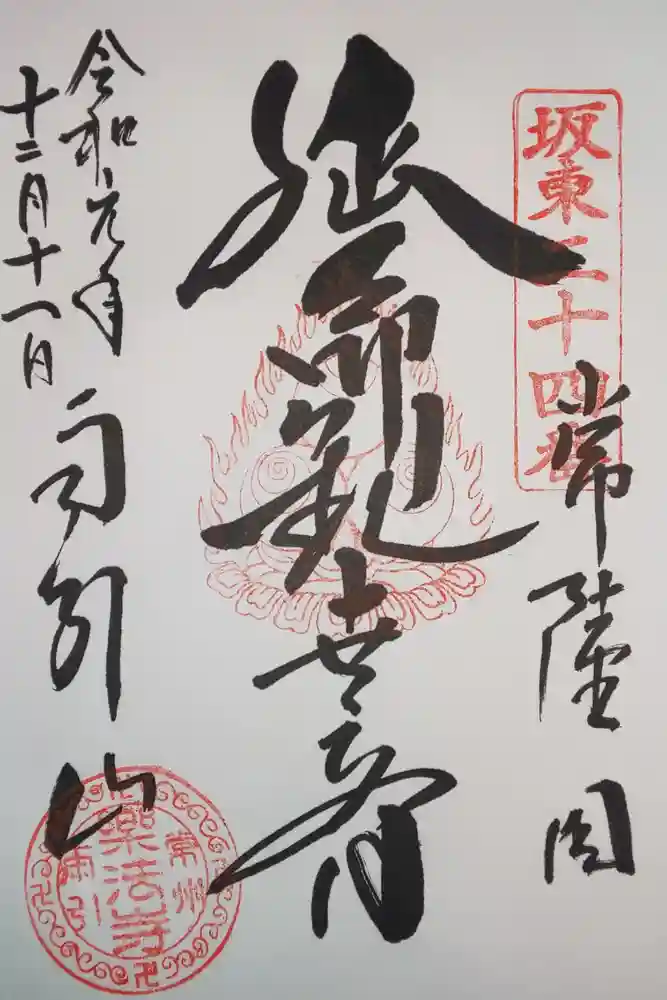 坂東二十四番
常陸国
延命観世音
令和元年
十二月十一日
雨引山
常州
楽法寺
雨引山